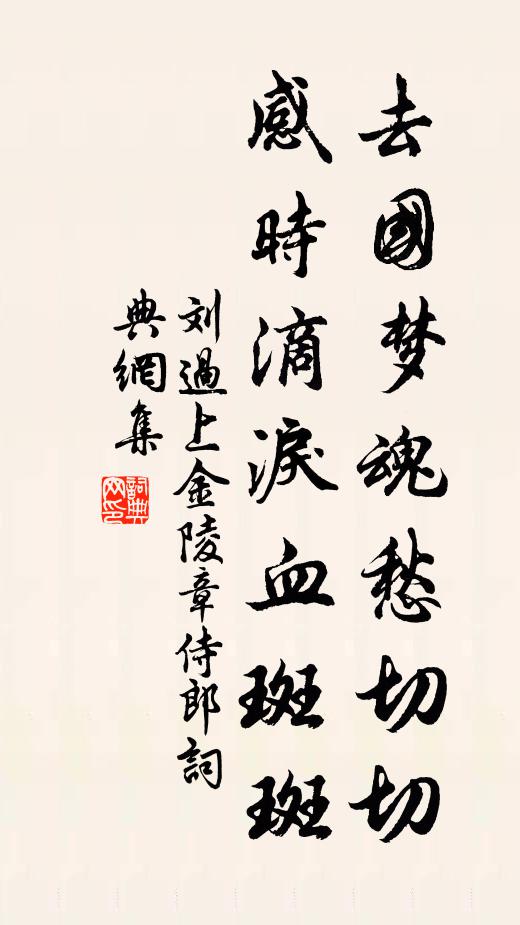 去國梦魂愁切切
感時滴淚血斑斑
刘過上金陵章侍郎詞
典網集
詞典网印